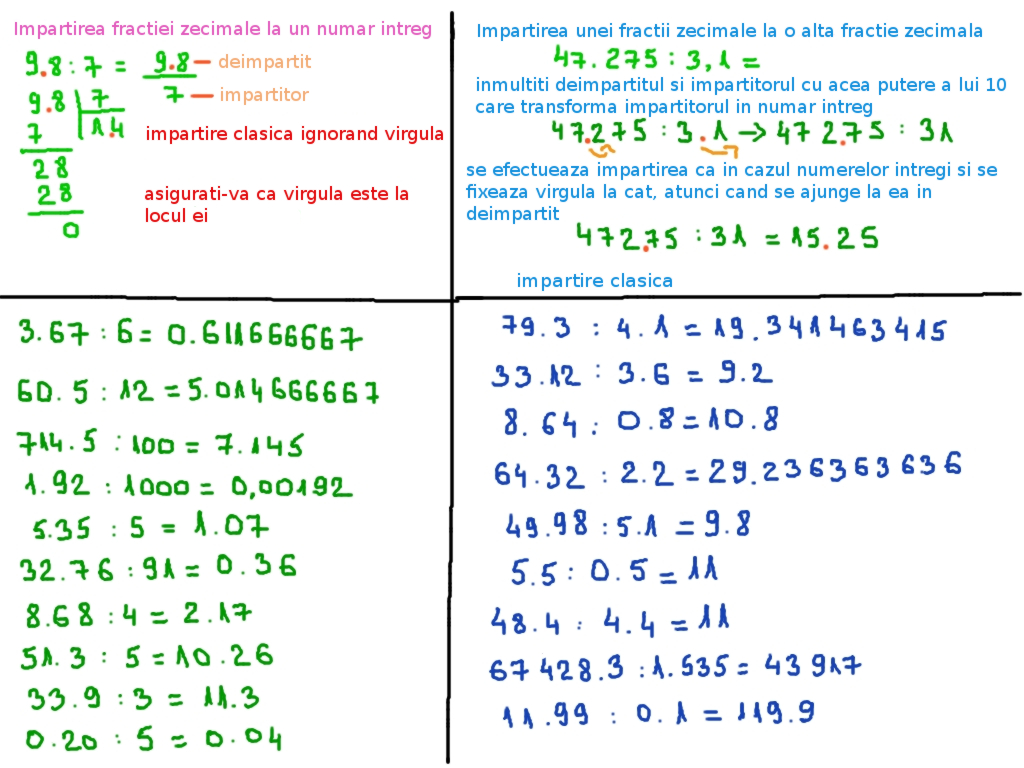 Impartirea fractiei zecimale la un numar intreg
9.8 : 7 = 9.8 — deimpartit
7 — impartitor
9.8 | 7
7 1.4
impartire clasica ignorand virgula
28
28
0
asigurati-va ca virgula este la
locul ei
Impartirea unei fractii zecimale la o alta fractie zecimala
47.275 : 3,1 =
inmultiti deimpartitul si impartitorul cu acea putere a lui 10
care transforma impartitorul in numar intreg
47.275 : 3.1 → 472.75 : 31
se efectueaza impartirea ca in cazul numerelor intregi si se
fixeaza virgula la cat, atunci cand se ajunge la ea in
deimpartit
472.75 : 31 = 15.25
impartire clasica
3.67 : 6 = 0.611666667
60.5 : 12 = 5.014666667
714.5 : 100 = 7.145
1.92 : 1000 = 0,00192
5.35 : 5 = 1.07
32.76 : 91 = 0.36
8.68 : 4 = 2.17
51.3 : 5 = 10.26
33.9 : 3 = 11.3
0.20 : 5 = 0.04
79.3 : 4.1 = 19.341463415
33.12 : 3.6 = 9.2
8.64 : 0.8 = 10.8
64.32 : 2.2 = 29.236363636
49.98 : 5.1 = 9.8
5.5 : 0.5 = 11
48.4 : 4.4 = 11
67 428.3 : 1.535 = 43 917
11.99 : 0.1 = 119.9